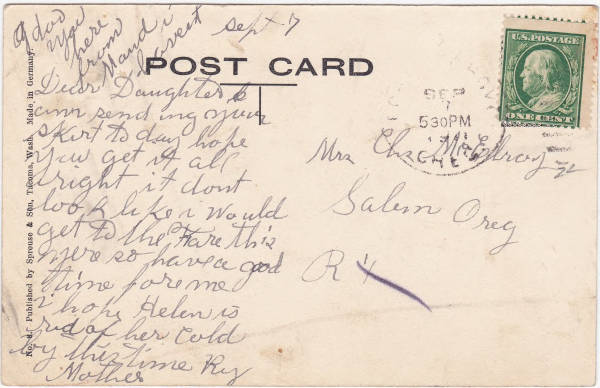 Sept 7
I do do
you
here
from
Maud i
havent
POST CARD
U.S. POSTAGE
ONE CENT
SEP
7
530PM
Dear Daughter
am sending your
skirt to day hope
you get it all
right it dont
look like i Would
get to the Fare this
yere so have a good
time for me
i hope Helen is
rid of her Cold
by this time
Mother
Mrs Chas
Salem Oreg
R
No. d. Published by Sprouse & Son, Tacoma, Wash. Made in Germany.